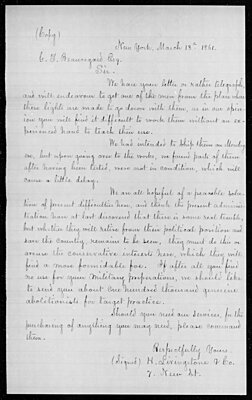 (Copy)
New York, March 18th 1861.
G. T. Beauregard Esq.
Sir.
We have your letter or rather telegraph,
and will endeavour to get one of the men from the place where
these lights are made to go down with them, as in our opin-
ion you will find it difficult to work them without an ex-
perienced hand to teach their use.
We had intended to ship them on Monday
, but upon going over to the works, we found parts of them
after having been tested, were not in condition, which will
cause a little delay.
We are all hopeful of a peaceable solu-
tion of present difficulties here, and think the present adminis-
tration has at last discovered that there is some real trouble,
but whether they will retire from their political position and
save the country, remains to be seen, they must do this or
arouse the conservative interests here, which they will
find a more formidable foe. If after all you find
no use for your Military preparations, we should like
to send you about One hundred thousand genuine
abolitionists for target practice.
Should you need our services, for the
purchasing of anything you may need, please command
them.
Respectfully Yours.
(Signed) H. Livingstone & Co.
7. New St.